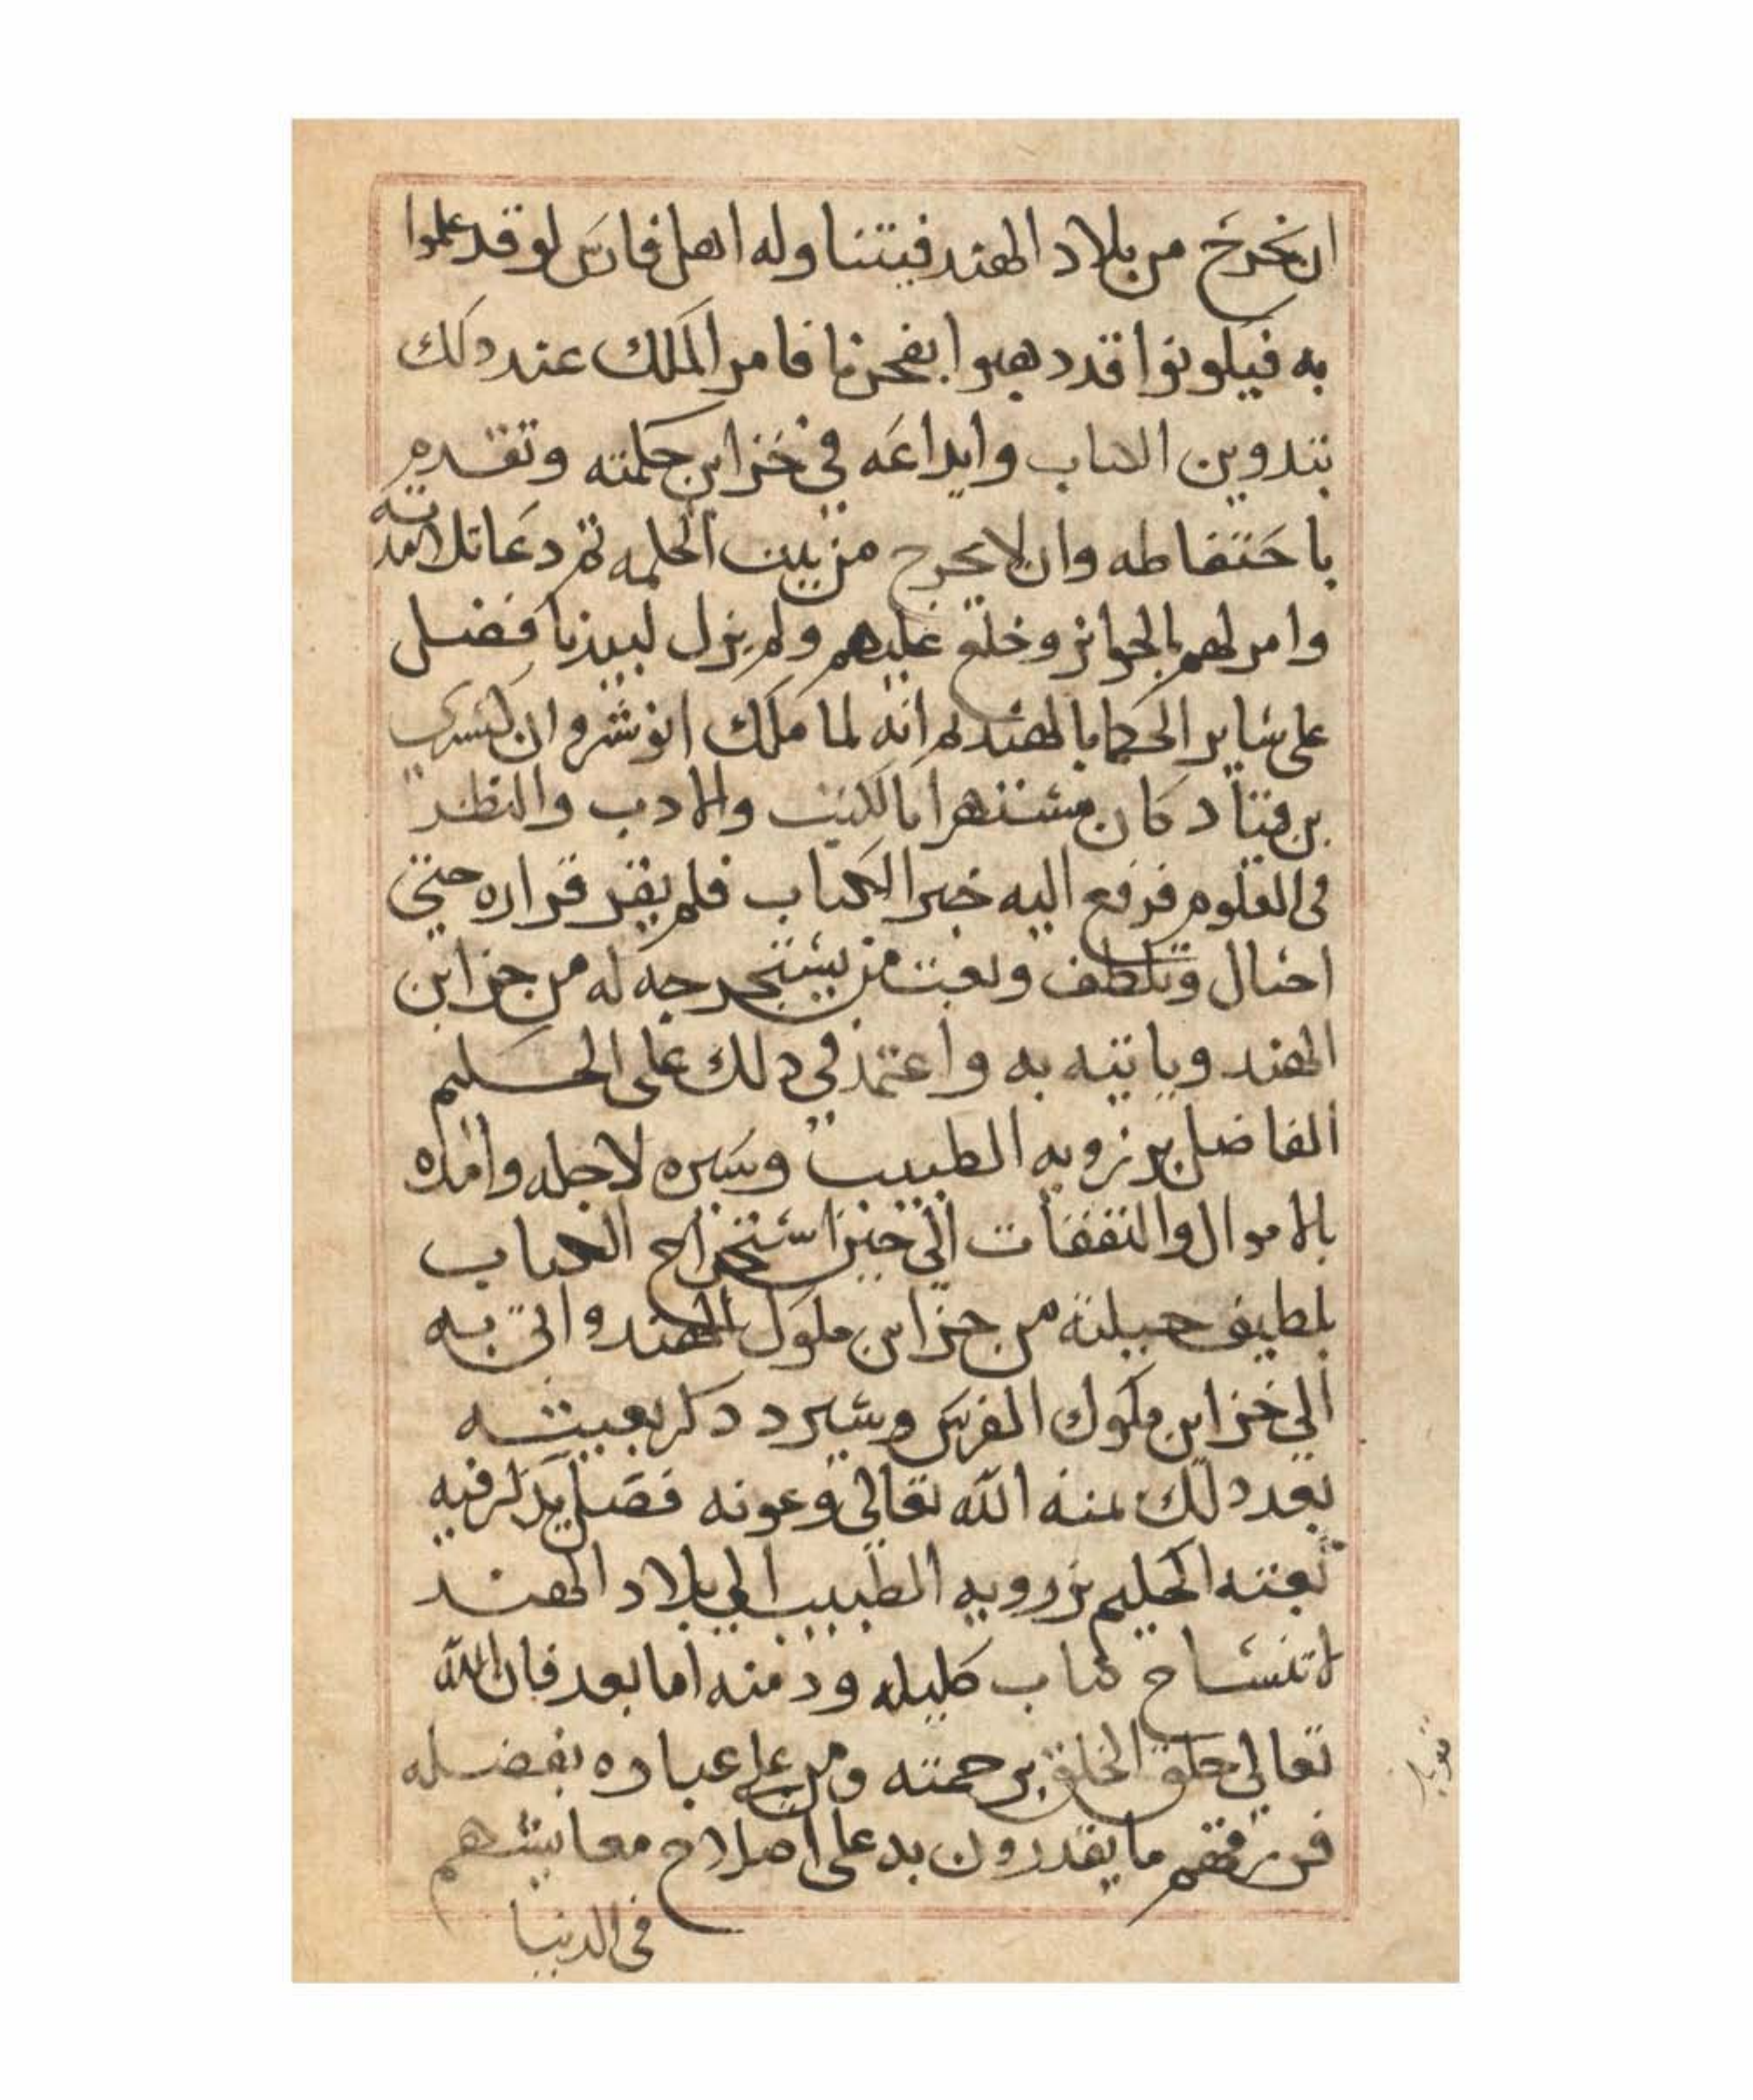 ان يخرج من بلاد الهند فيتناوله اهل فارس لو قد علموا
به فيكونوا قد دهبوا بفخرنا فامر الملك عند دلك
بتدوين الكتاب وايداعه في خزاين حكمته وتقدم
باحتفاظه وان لا يخرج من بيت الحكمه ثم دعا تلامدته
وامر لهم بالجوايز وخلع عليهم ولم يزل لبيدبا فضل
على ساير الحكما بالهند ثم انه لما ملك انوشروان كسرى
بن قباد كان مشتهرا بالكتب والادب والنظر
فى العلوم فرفع اليه خبر الكتاب فلم يقر قراره حتى
احتال وتلطف وبعث من يستخرجه له من خزاين
الهند وياتيه به واعتمد في دلك على الحكيم
الفاضل برزويه الطبيب وسيره لاجله وامده
بالاموال والنفقات الي حين استخراج الكتاب
بلطيف حيلته من خزاين ملوك الهند واتى به
الي خزاين ملوك الفرس وسيرد دكر بعيثه
بعد دلك بمنه الله تعالى وعونه فصل يدكر فيه
بعثه الحكيم برزويه الطبيب الي بلاد الهند
لاتنساخ كتاب كليله ودمنه اما بعد فان الله
تعالي خلق الخلق برحمته ومن على عباده بفضله
فرزقهم ما يقدرون به على اصلاح معايشهم
فى الدنيا